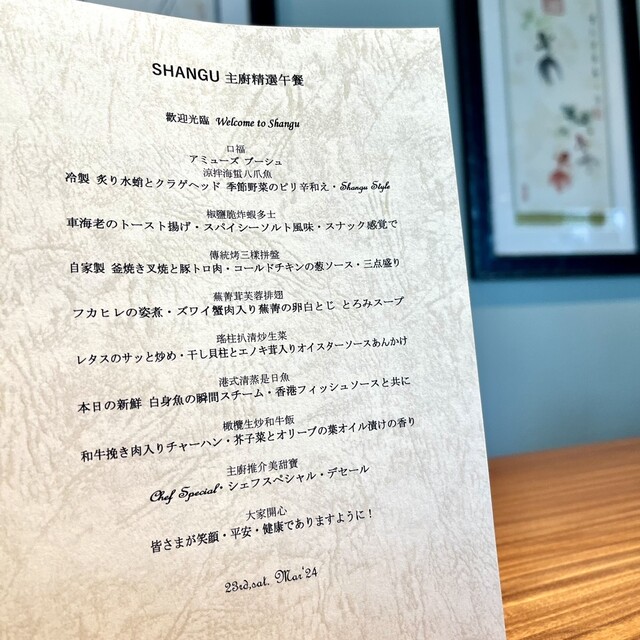 SHANGU 主廚精選午餐
歡迎光臨 Welcome to Shangu
口福
アミューズ ブーシュ
涼拌海蜇八爪魚
冷製 炙り水蛸とクラゲヘッド 季節野菜のピリ辛和え・Shangu Style
椒鹽脆炸蝦多士
車海老のトースト揚げ・スパイシーソルト風味・スナック感覚で
傳統烤三樣拼盤
自家製 釜焼き叉焼と豚トロ肉・コールドチキンの葱ソース・三点盛り
蕪菁茸芙蓉排翅
フカヒレの姿煮・ズワイ蟹肉入り蕪菁の卵白とじ とろみスープ
瑤柱扒清炒生菜
レタスのサッと炒め・干し貝柱とエノキ茸入りオイスターソースあんかけ
港式清蒸是日魚
本日の新鮮 白身魚の瞬間スチーム・香港フィッシュソースと共に
橄欖生炒和牛飯
和牛挽き肉入りチャーハン・芥子菜とオリーブの葉オイル漬けの香り
主廚推介美甜寶
Chef Special・シェフスペシャル・デセール
大家開心
皆さまが笑顔・平安・健康でありますように！
23rd,sat. Mar'24